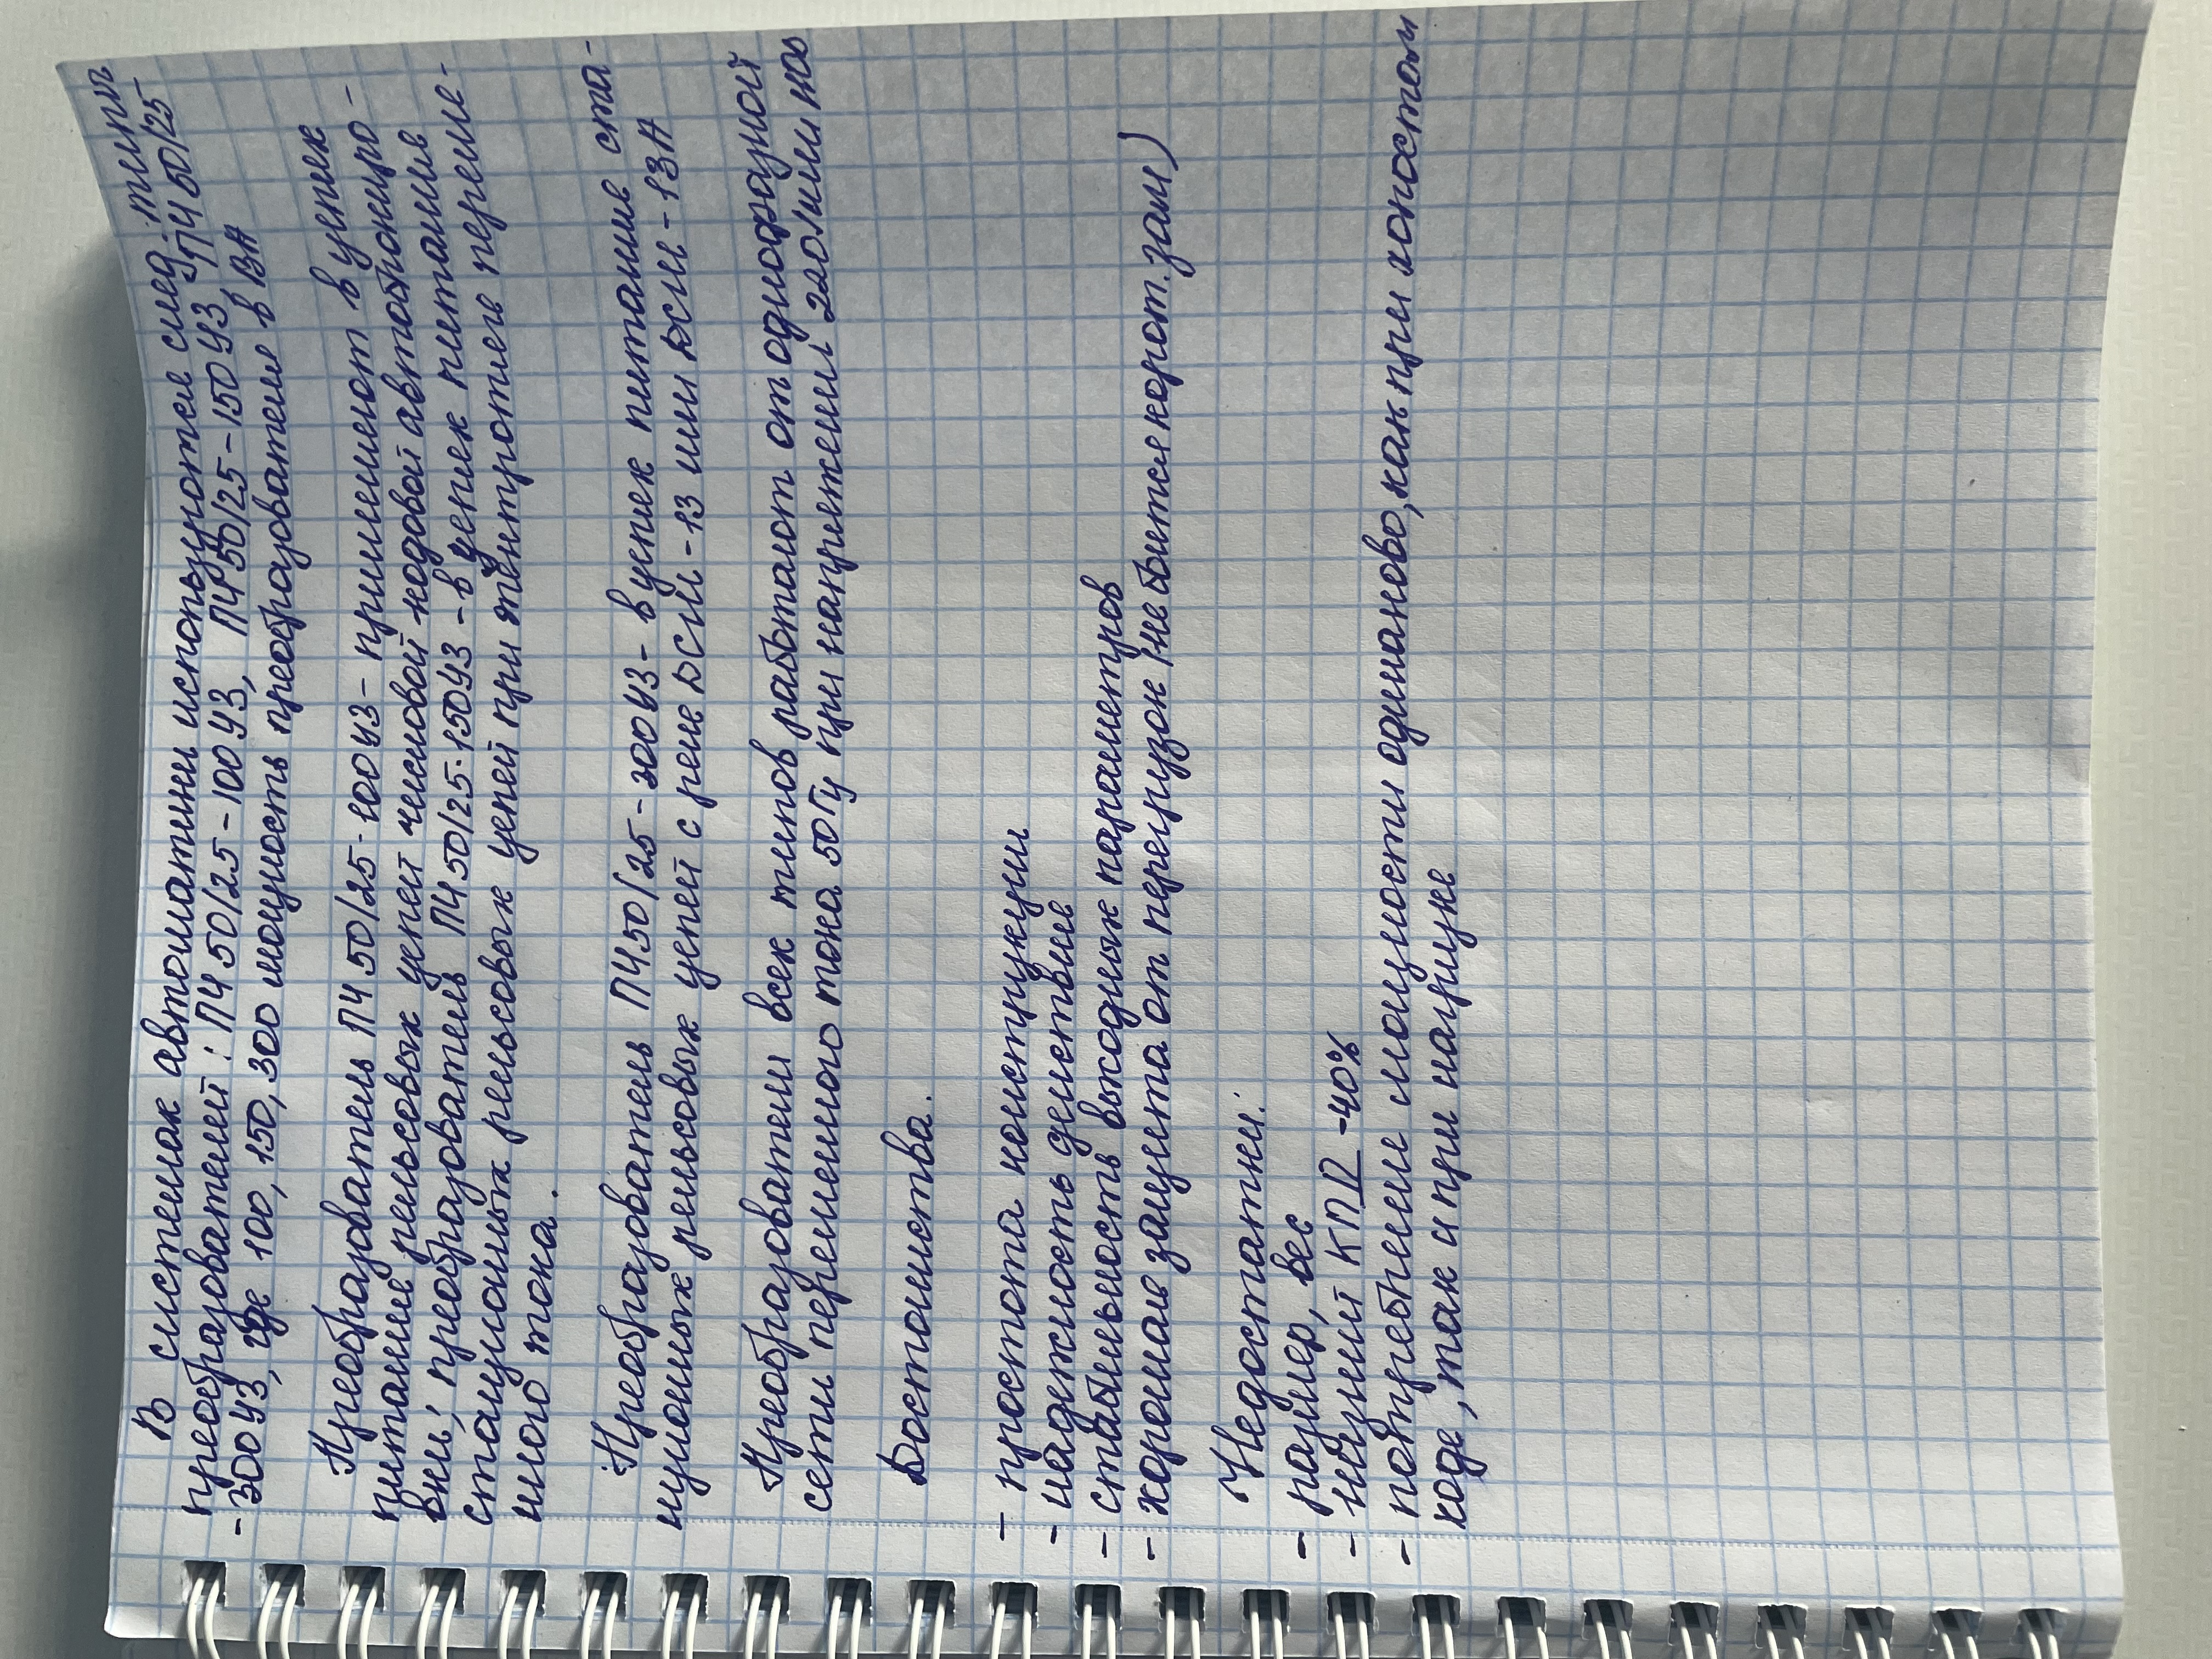 В системах автоматики используются след. типы
преобразователей: ПЧ 50/25-100 У3, ПЧ 50/25-150 У3, ПЧ 50/25
-300 У3, где 100, 150, 300 мощность преобразователе в ВА
Преобразователь ПЧ 50/25-100 У3 - применяют в цепях
питание рельсовых цепей числовой кодовой автоблокиро-
вки; преобразователь ПЧ 50/25-150У3 - в цепях питание
станционных рельсовых цепей при электротяге переме-
ного тока.
Преобразователь ПЧ50/25-300У3- в цепях питание ста-
нционных рельсовых цепей с реле ДСШ-13 или ДСШ-13А
Преобразователи всех типов работают от однофазной
сети переменного тока 50Гц при напряжении 220
Достоинства.
- простота конструкции
- надежность действие
- стабильность выходных параметров
- хорошая защита от перегрузок (не боится корот. зам)
Недостатки:
- размер, вес
- низкий КПД -40%
- потребление мощности одинаково, как при холостом
ходе, так и при нагрузке